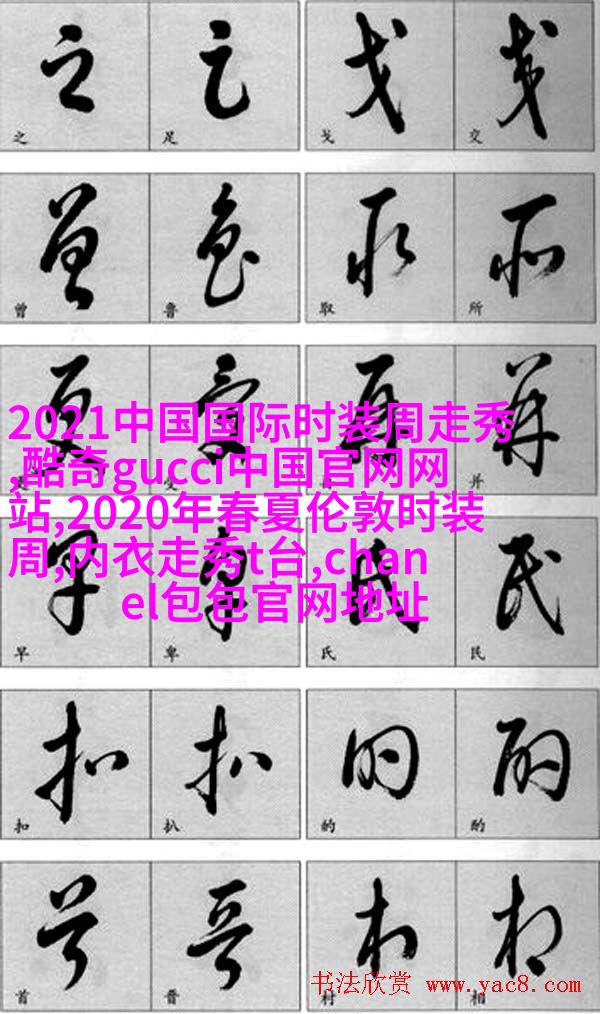 之 足 戈 交
曾 鲁 取 所
2021中国国际时装周走秀
,酷奇gucci中国官网网
站,2020年春夏伦敦时装
周,内衣走秀t台,chan
el包包官网地址
早 卑 氏 民
扣 扒 的 酌
首 晋 村 相
书法欣赏 www.yac8.com